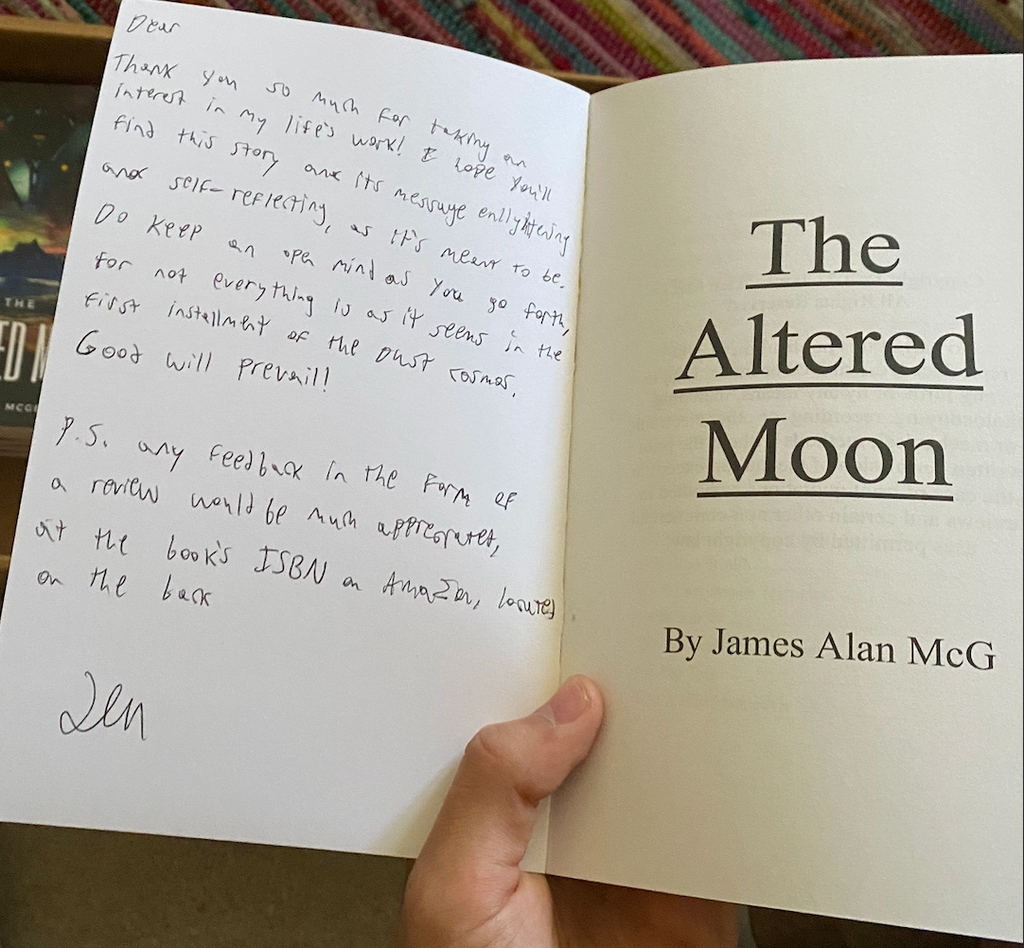 Dear
Thank you so much for taking an
interest in my life's work! I hope you'll
find this story and its message enllyghtening
and self-reflecting, as it's meant to be.
Do keep an open mind as you go forth,
for not everything is as it seems in the
first installment of the Dust Cosmos.
Good will prevail!
P.S. any feedback in the form of
a review would be much apprecrated,
at the book's ISBN on Amazon, located
on the back
The
Altered
Moon
By James Alan McG
THE
ED M
MCG